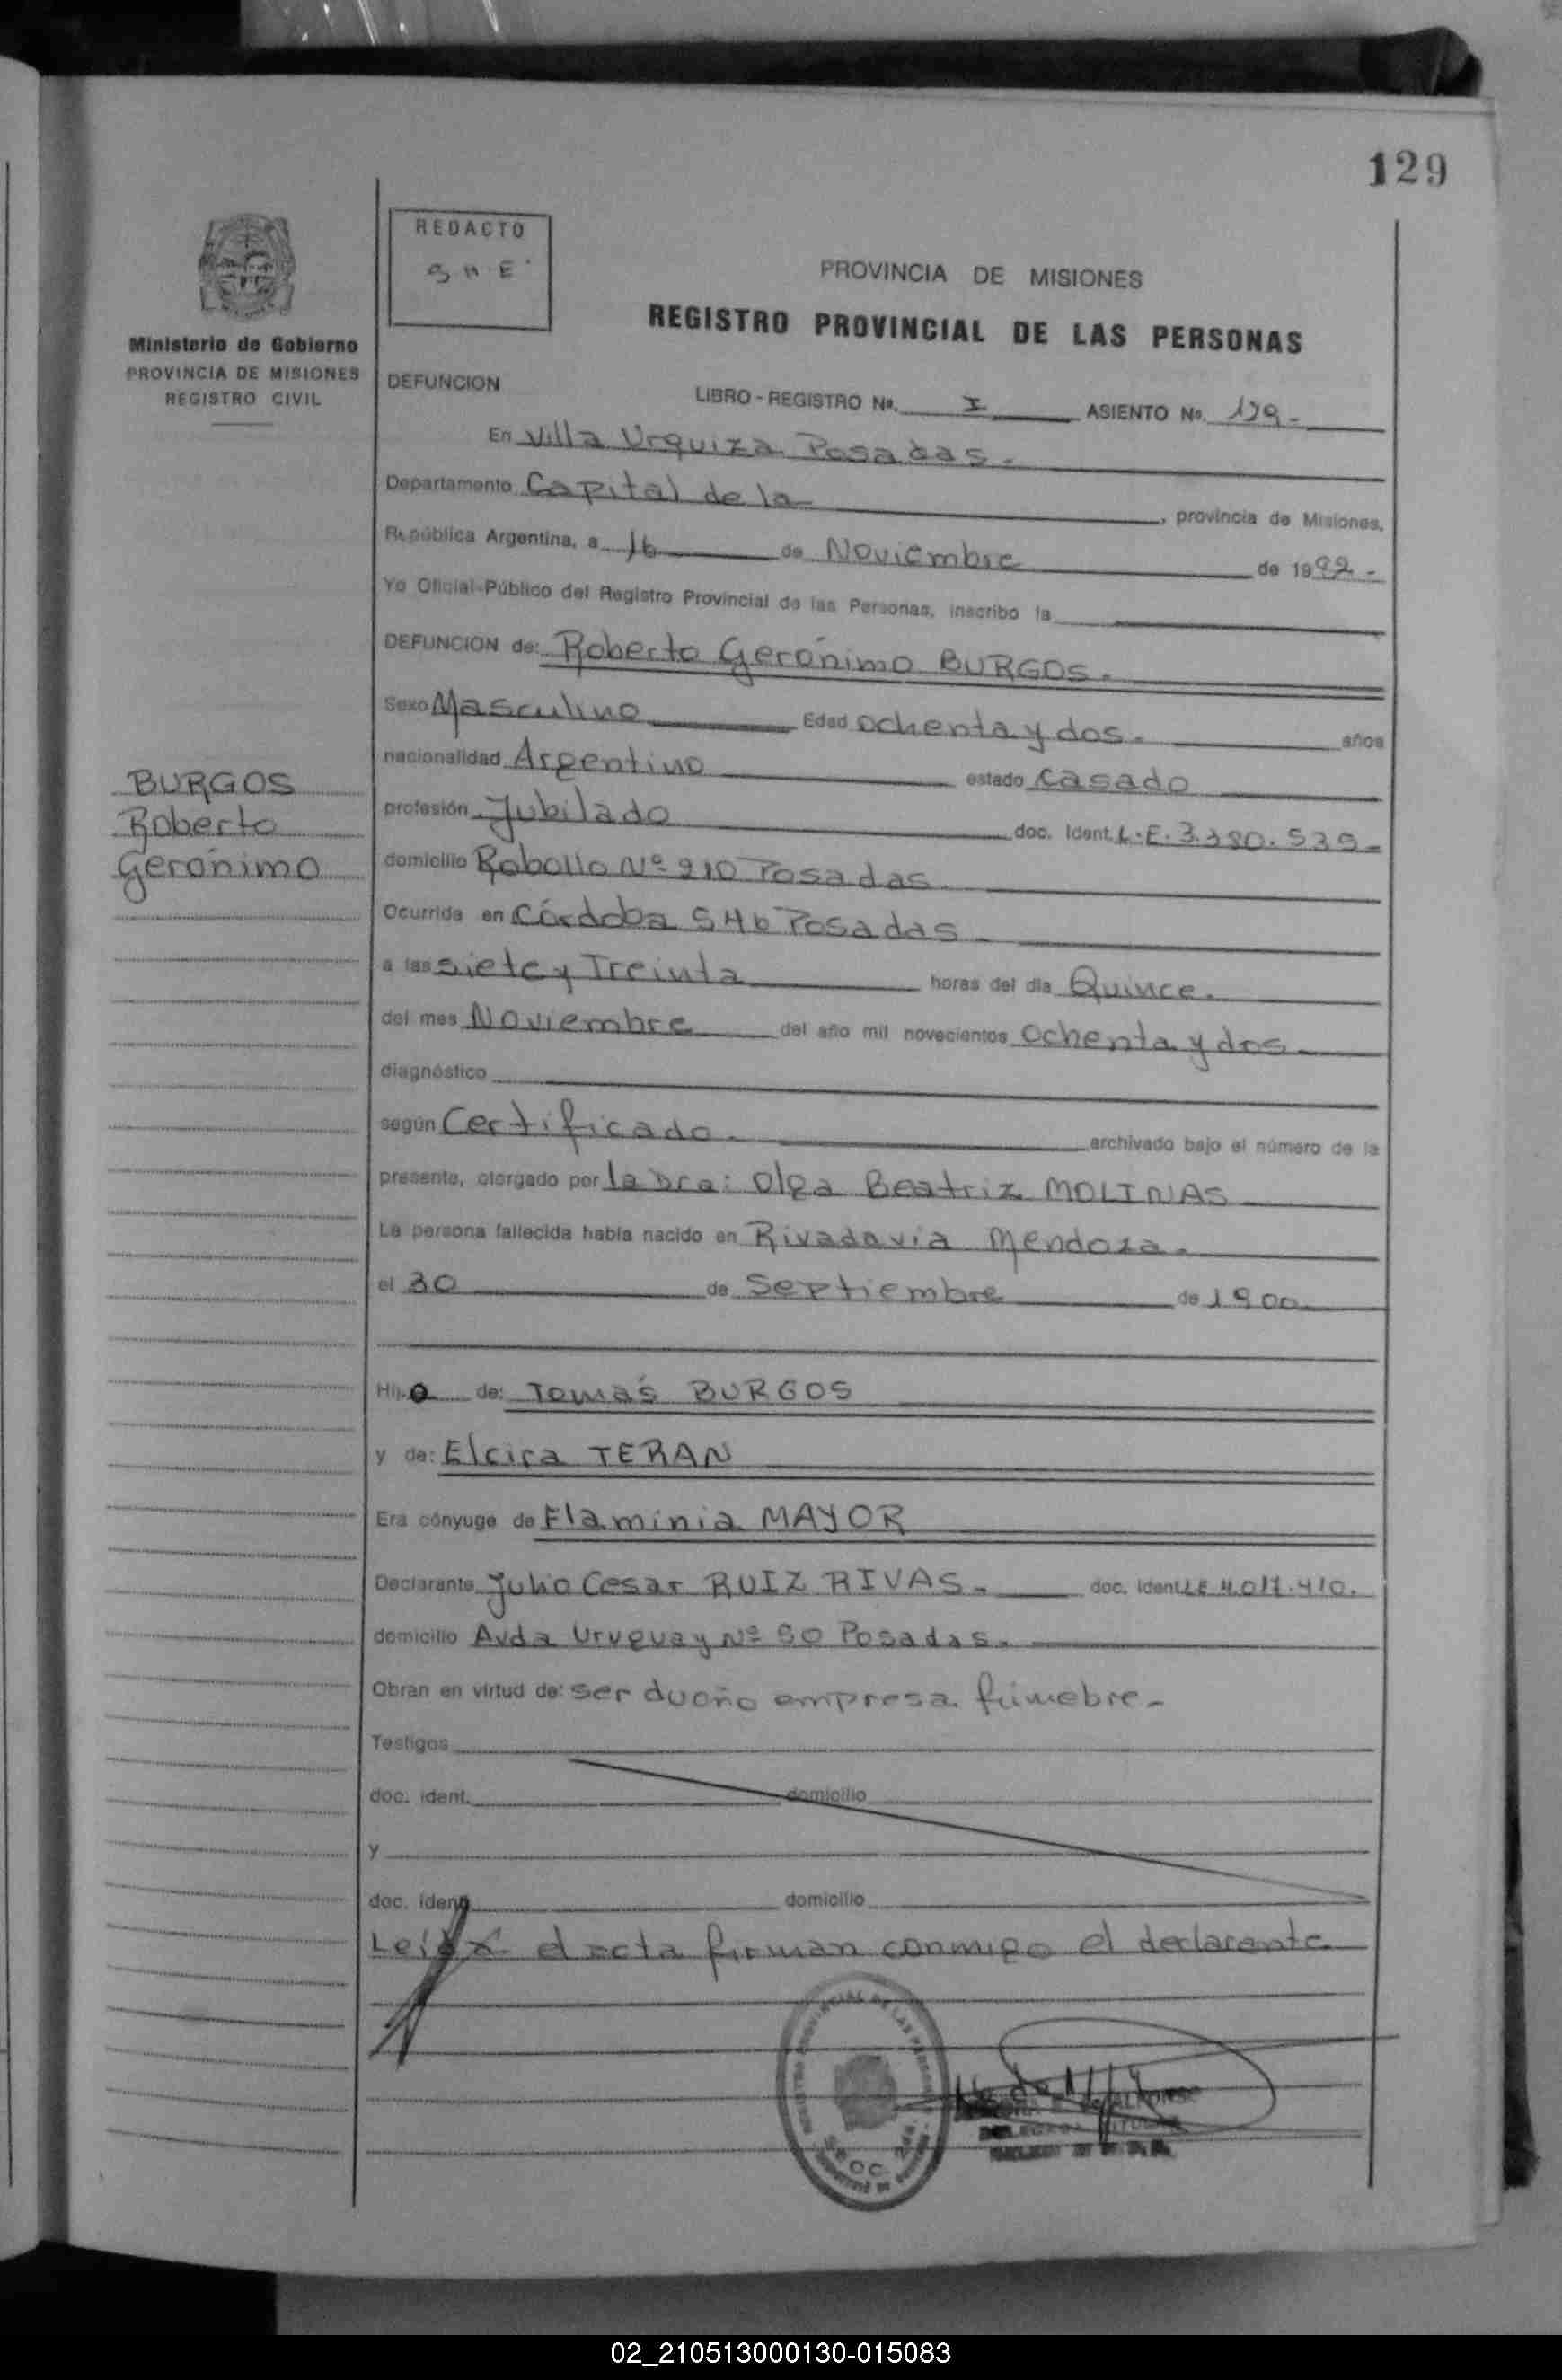 129
REDACTO
PROVINCIA DE MISIONES
REGISTRO PROVINCIAL DE LAS PERSONAS
Ministerio de Gobierno
PROVINCIA DE MISIONES
REGISTRO CIVIL
DEFUNCION
LIBRO - REGISTRO Nº. I ASIENTO Nº. 129-
En Villa Urquiza Posadas.
Departamento Capital de la , provincia de Misiones.
República Argentina, a 16 de Noviembre de 1982-
Yo Oficial-Público del Registro Provincial de las Personas, inscribo la
DEFUNCION de: Roberto Gerónimo BURGOS.
Sexo Masculino Edad ochenta y dos. años
nacionalidad Argentino estado casado
BURGOS
Roberto
Gerónimo
profesión Jubilado doc. Ident. L.E. 3.380.539-
domicilio Nº 210 Posadas.
Ocurrida en Córdoba 546 Posadas
a las siete y Treinta horas del día Quince.
del mes Noviembre del año mil novecientos ochenta y dos
diagnóstico
según Certificado. archivado bajo el número de la
presente, otorgado por la Dra: Olga Beatriz MOLINAS
La persona fallecida había nacido en Rivadavia Mendoza.
el 30 de Septiembre de 1900
Hijo de: Tomás BURGOS
y de: Elcira TERAN
Era cónyuge de Flaminia MAYOR
Declarante Julio Cesar RUIZ RIVAS. doc. Ident. LE 4.017.410.
domicilio Avda Uruguay Nº 90 Posadas.
Obran en virtud de: ser dueño empresa fúnebre-
Testigos
doc. ident. domicilio
y
doc. ident. domicilio
Leída el acta firman conmigo el declarante
02_210513000130-015083